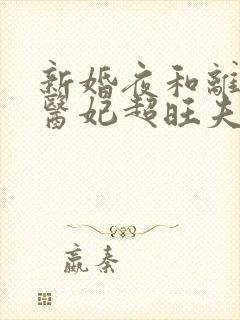 新婚夜和離
醫妃超旺夫
嬴秦